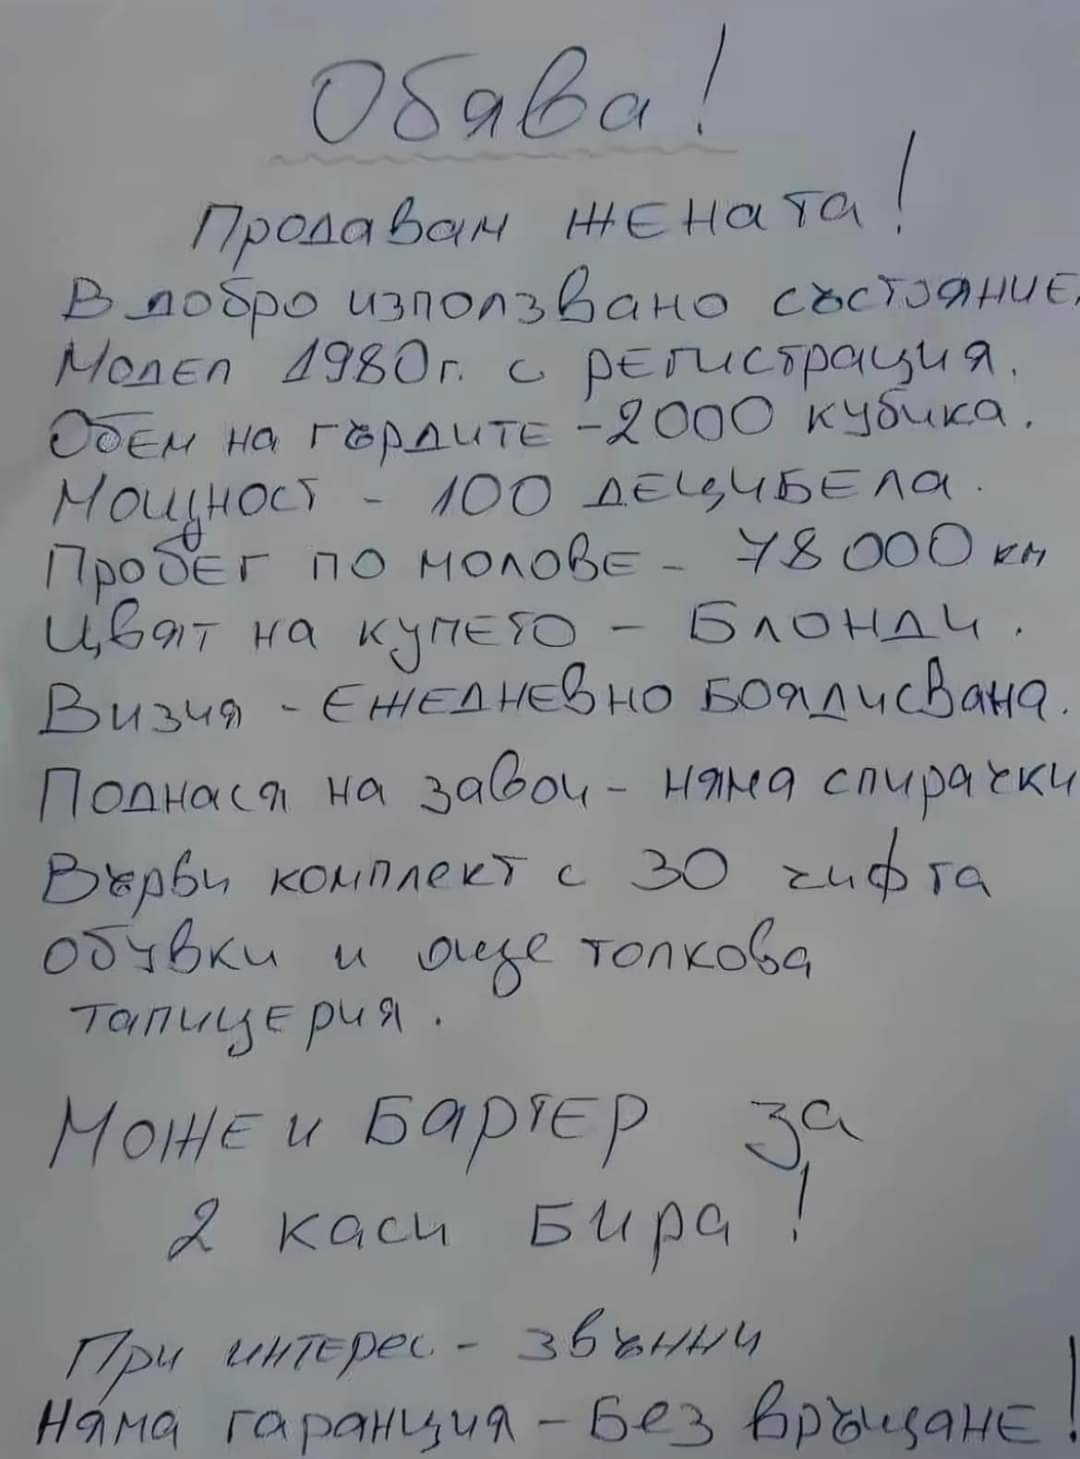 Обява!
Продавам жената!
В добро използвано състояние,
Модел 1980г. с регистрация.
Обем на гърдите - 2000 кубика.
Мощност - 100 децибела.
Пробег по молове - 78000 км
Цвят на купето - Блонди.
Визия - ежедневно боядисвана.
Поднася на завои - няма спирачки
Върви комплект с 30 чифта
обувки и още толкова
тапицерия.
Може и Бартер за
2 каси Бира!
При интерес - звънни
Няма гаранция - Без връщане!